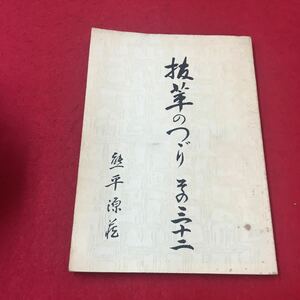 抜萃のつゞり その三十二
熊平源蔵